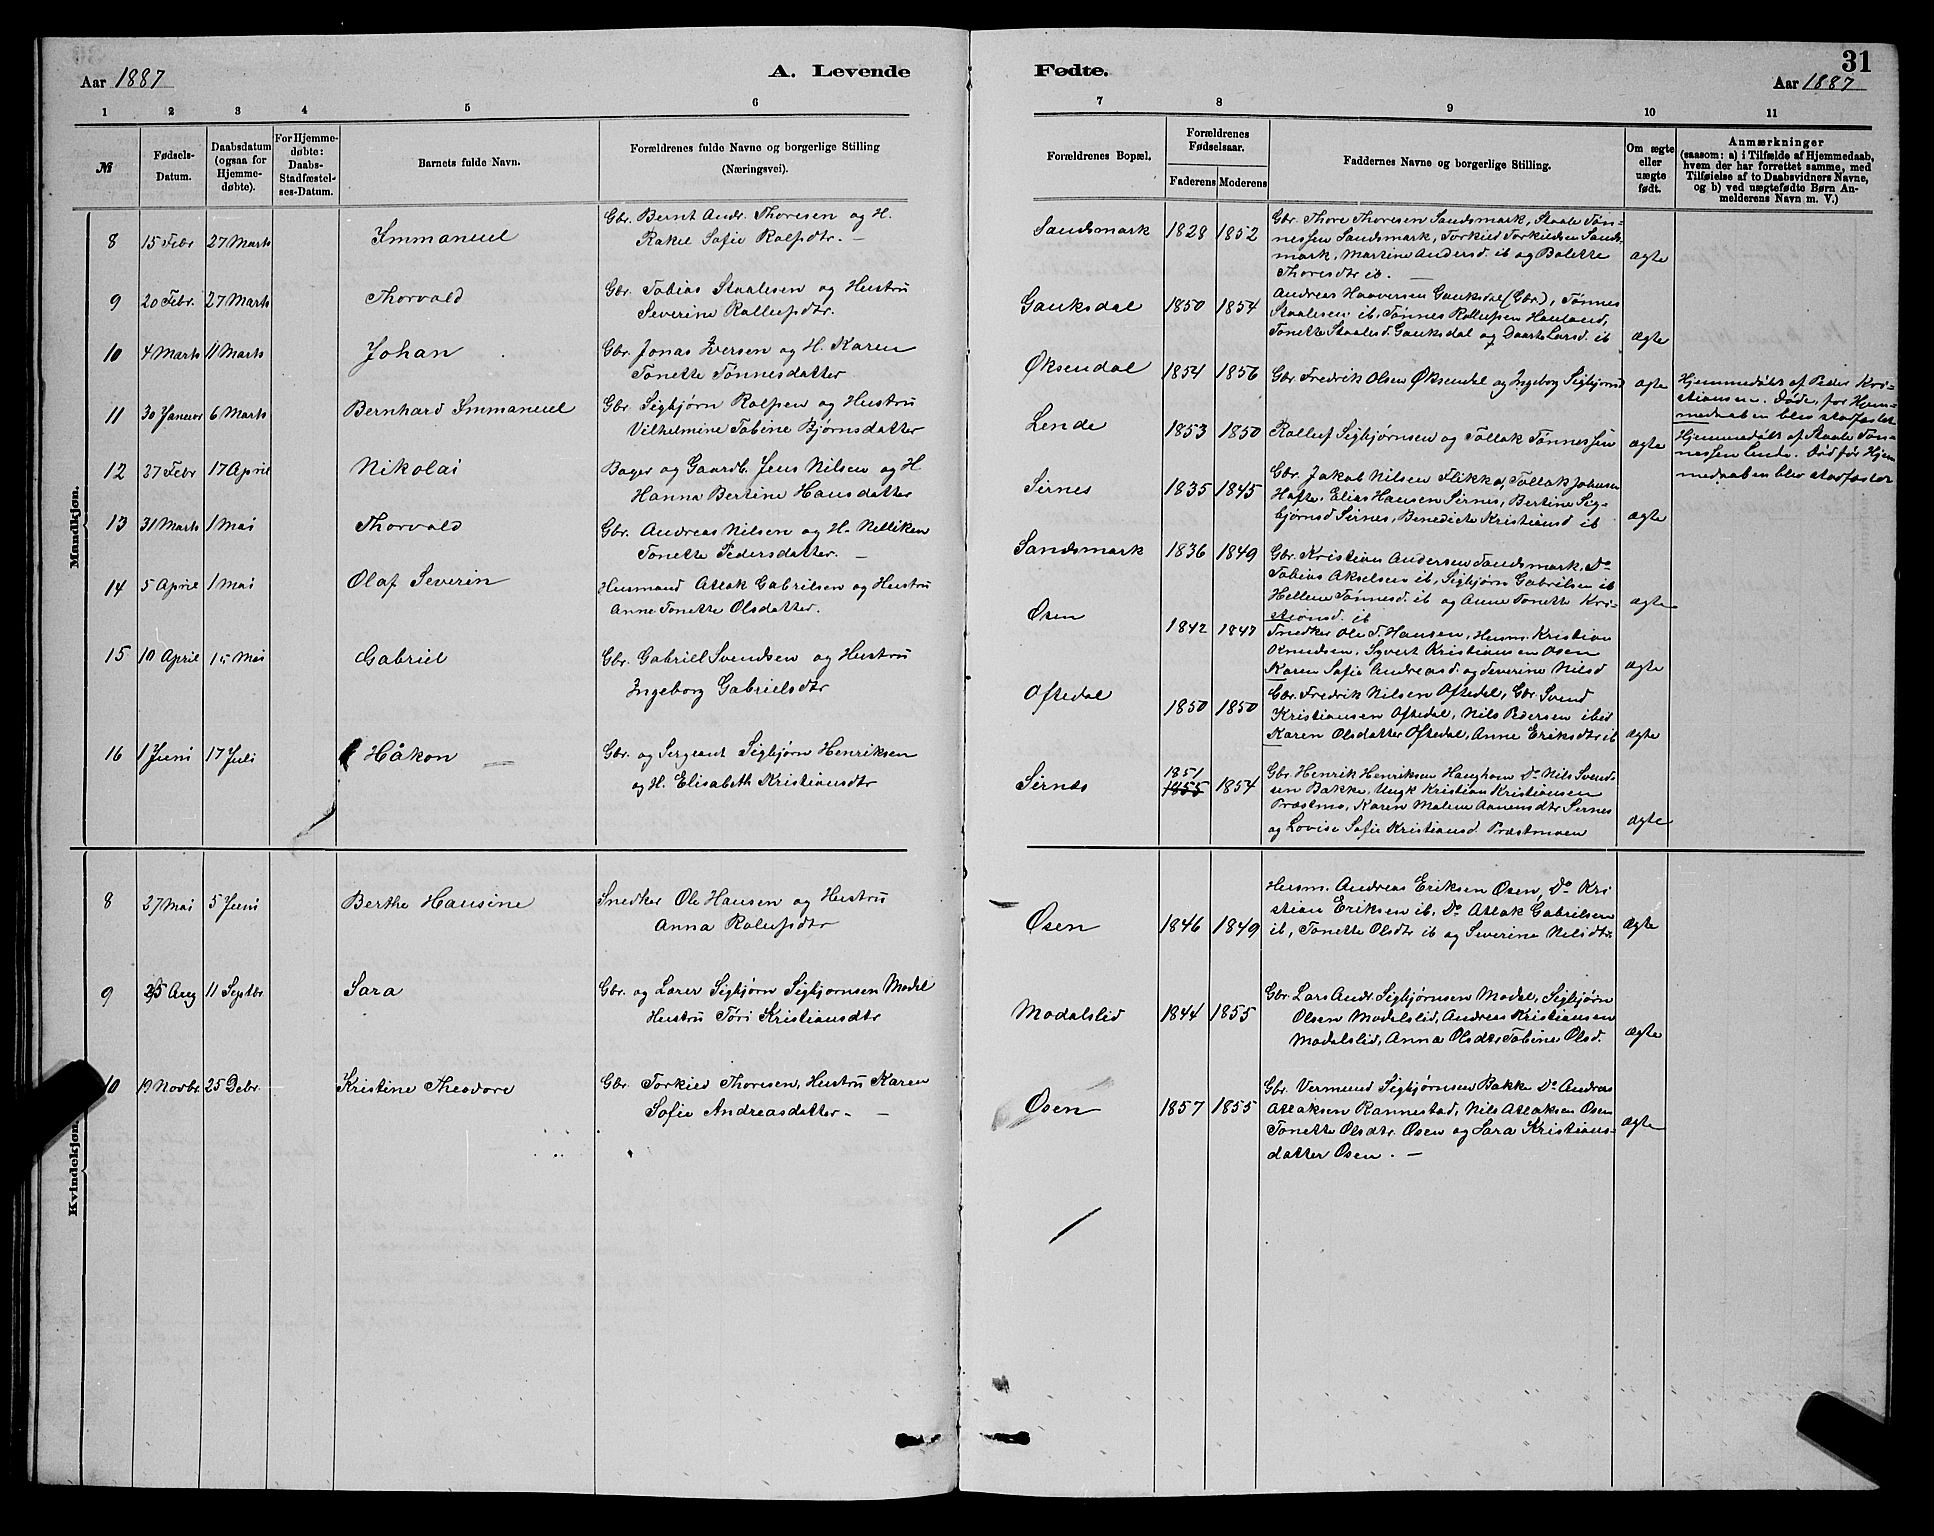 31
Aar 1887 A. Levende Fødte. Aar 1887
1 2 3 4 5 6 7 8 9 10 11
№
Fødsels-
Datum.
Daabsdatum
(ogsaa for
Hjemme-
døbte).
For Hjemme-
døbte:
Daabs-
Stadfæstel-
ses-Datum.
Barnets fulde Navn.
Forældrenes fulde Navne og borgerlige Stilling
(Næringsvei).
Forældrenes Bopæl.
Forældrenes
Fødselsaar.
Faderens Moderens
Faddernes Navne og borgerlige Stilling.
Om ægte
eller
uægte
født.
Anmærkninger
(saasom: a) i Tilfælde af Hjemmedaab,
hvem der har forrettet samme, med
Tilføielse af to Daabsvidners Navne,
og b) ved uægtefødte Børn An-
melderens Navn m. V.)
Mandkjøn.
8 15 Febr 27 Marts Immanuel
Gbr. Bernt Andr. Thoresen og H.
Rakel Sofie Rolfsdtr. —
Sandsmark 1828 1852
Gbr. Thore Thoresen Sandsmark, Staale Tøn-
nessen Sandsmark, Torkild Torkildsen Sands-
mark, Martine Andersd. ib og Bolette
Thoresdtr ib. —
ægte
9 20 Febr. 27 Marts Thorvald
Gbr. Tobias Staalesen og Hustru
Severine Rollufsdtr.
Gauksdal 1850 1854
Andreas Haaversen Gauksdal (Gbr), Tønnes
Staalesen ib, Tønnes Rollufsen Hauland,
Tonette Staalesd. Gauksdal og Daarte Larsd. ib
ægte
10 4 Marts 11 Marts Johan
Gbr. Jonas Iversen og H. Karen
Tonette Tønnesdatter
Øksendal 1854 1856
Gbr Fredrik Olsen Øksendal og Ingeborg Sigbjørnsd
ægte
Hjemmedøbt af Peder Kri-
stiansen. Døde, før Hjem-
medaaben blev stadfæstet
11 30 Januar 6 Marts Bernhard Immanuel
Gbr. Sigbjørn Rolfsen og Hustru
Vilhelmine Tobine Bjørnsdatter
Lende 1853 1850
Rolluf Sigbjørnsen og Tollak Tønnessen
ægte
Hjemmedøbt af Staale Tøn-
nessen Lende. Død før Hjem
medaaben blev stadfæstet
12 27 Febr 17 April Nikolai
Bager og Gaardb. Jens Nilsen og H
Hanna Bertine Hansdatter
Sirnes 1835 1845
Gbr. Jakob Nilsen Flikka, Tollak Johnsen
Hafte, Elias Hansen Sirnes, Bertine Sig-
bjørnsd Sirnes, Benedicte Kristiansd ib
ægte
13 31 Marts 1 Mai Thorvald
Gbr. Andreas Nilsen og H. Nilliken
Tonette Pedersdatter. —
Sandsmark 1836 1849
Gbr. Kristian Andersen Sandsmark, Do
Tobias Akselsen ib, Sigbjørn Gabrilsen ib
Hellene Tønnesd. ib og Anne Tonette Kri-
stiansd. ib
ægte
14 5 April 1 Mai Olaf Severin
Husmand Atlak Gabrilsen og Hustru
Anne Tonette Olsdatter.
Øsen 1842 1847
Snedker Ole T. Hansen, Husm. Kristian
Knudsen, Syvert Kristiansen Osen
Karen Sofie Andreasd. og Severine Nilsd
ægte
15 10 April 15 Mai Gabriel
Gbr. Gabriel Svendsen og Hustru
Ingeborg Gabrielsdtr
Oftedal 1850 1850
Gbr. Fredrik Nilsen Oftedal, Gbr. Svend
Kristiansen Oftedal, Nils Pedersen ibid
Karen Olsdatter Oftedal, Anne Eriksdtr ib
ægte
16 1 Juni 17 Juli Håkon —
Gbr. og Sergeant Sigbjørn Henriksen
og H. Elisabeth Kristiansdtr
Sirnes 1851 1855 1854
Gbr. Henrik Henriksen Haughom Do Nils Svend-
sen Bakke, Ungk Kristian Kristiansen
Præstmo, Karen Malene Aanensdtr Sirnes
og Lovise Sofie Kristiansd. Præstmoen
ægte
Kvindekjøn.
8 27 Mai 5 Juni Berthe Hansine
Snedker Ole Hansen og Hustru
Anna Rolufsdtr
Øsen 1846 1849
Husm. Andreas Eriksen Øsen, Do Kri
stian Eriksen ib, Do Atlak Gabrilsen
ib, Tonette Olsdtr ib og Severine Nilsdtr
ægte
9 25 Aug 11 Septbr Sara
Gbr. og Lærer Sigbjørn Sigbjørnsen Modal
Hustru Tøri Kristiansdtr
Modalslid 1844 1855
Gbr. Lars Andr. Sigbjørnsen Modal, Sigbjørn
Olsen Modalslid, Andreas Kristiansen
Modalslid, Anna Olsdtr Tobine Olsd.
ægte
10 19 Novbr 25 Debr. Kristine Theodore
Gbr. Torkild Thoresen, Hustru Karen
Sofie Andreasdatter. —
Øsen 1857 1855
Gbr. Vermund Sigbjørnsen Bakke Do Andreas
Atlaksen Rannestad, Nils Atlaksen Osen
Tonette Olsdtr. Osen og Sara Kristians-
datter Osen. —
ægte